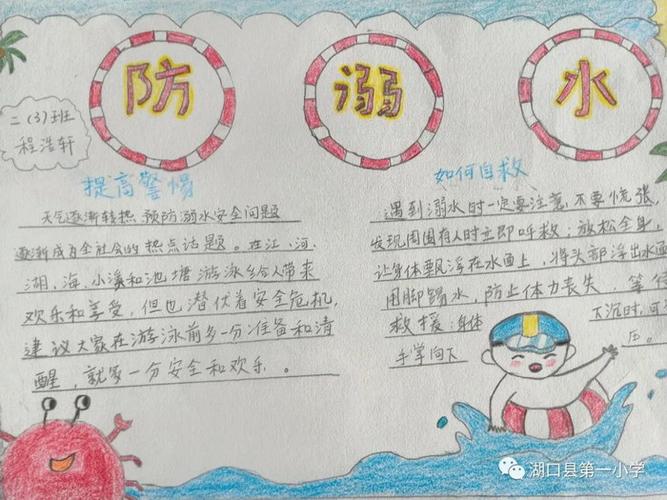 防溺水
二(3)班
程浩轩
提高警惕
天气逐渐转热,预防溺水安全问题
逐渐成为全社会的热点话题。在江、河、
湖、海、小溪和池塘游泳会令人带来
欢乐和享受,但也潜伏着安全危机,
建议大家在游泳前多一分准备和清
醒,就多一分安全和欢乐。
如何自救
遇到溺水时一定要注意,不要慌张,
发现周围有人时立即呼救;放松全身,
让身体飘浮在水面上,将头部浮出水面
用脚踢水,防止体力丧失 等待
救援;身体 下沉时,可
手掌向下 压。
湖口县第一小学